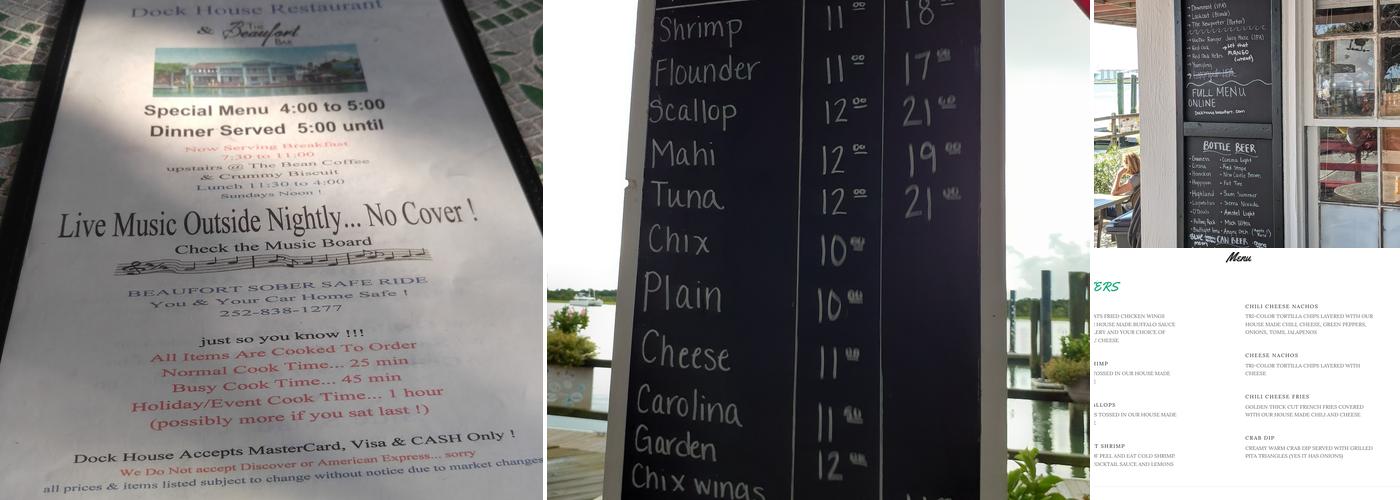 Dock House Restaurant
& The Beaufort
BAR
Special Menu 4:00 to 5:00
Dinner Served 5:00 until
Now Serving Breakfast
7:30 to 11:00
upstairs @ The Bean Coffee
& Crummy Biscuit
Lunch 11:30 to 4:00
Sundays Noon !
Live Music Outside Nightly... No Cover !
Check the Music Board
BEAUFORT SOBER SAFE RIDE
You & Your Car Home Safe !
252-838-1277
just so you know !!!
All Items Are Cooked To Order
Normal Cook Time... 25 min
Busy Cook Time... 45 min
Holiday/Event Cook Time... 1 hour
(possibly more if you sat last !)
Dock House Accepts MasterCard, Visa & CASH Only !
We Do Not accept Discover or American Express... sorry
all prices & items listed subject to change without notice due to market changes
Shrimp 11 00 18 00
Flounder 11 00 17 00
Scallop 12 00 21 00
Mahi 12 00 19 00
Tuna 12 00 21 00
Chix 10 00
Plain 10 00
Cheese 11 00
Carolina 11 00
Garden 12 00
Chix wings
FULL MENU
ONLINE
BOTTLE BEER
Corona Light
Red Stripe
Heineken New Castle Brown
Fat Tire
Highland
Sierra Nevada
O'Douls Amstel Light
Rolling Rock Mich Ultra
CAN BEER
Menu
ERS
ATS FRIED CHICKEN WINGS
HOUSE MADE BUFFALO SAUCE
ERY AND YOUR CHOICE OF
CHEESE
IMP
OSSED IN OUR HOUSE MADE
ALLOPS
S TOSSED IN OUR HOUSE MADE
T SHRIMP
PEEL AND EAT COLD SHRIMP
OCKTAIL SAUCE AND LEMONS
CHILI CHEESE NACHOS
TRI-COLOR TORTILLA CHIPS LAYERED WITH OUR
HOUSE MADE CHILI, CHEESE, GREEN PEPPERS,
ONIONS, TOMS, JALAPENOS
CHEESE NACHOS
TRI-COLOR TORTILLA CHIPS LAYERED WITH
CHEESE
CHILI CHEESE FRIES
GOLDEN THICK CUT FRENCH FRIES COVERED
WITH OUR HOUSE MADE CHILI AND CHEESE
CRAB DIP
CREAMY WARM CRAB DIP SERVED WITH GRILLED
PITA TRIANGLES (YES IT HAS ONIONS)